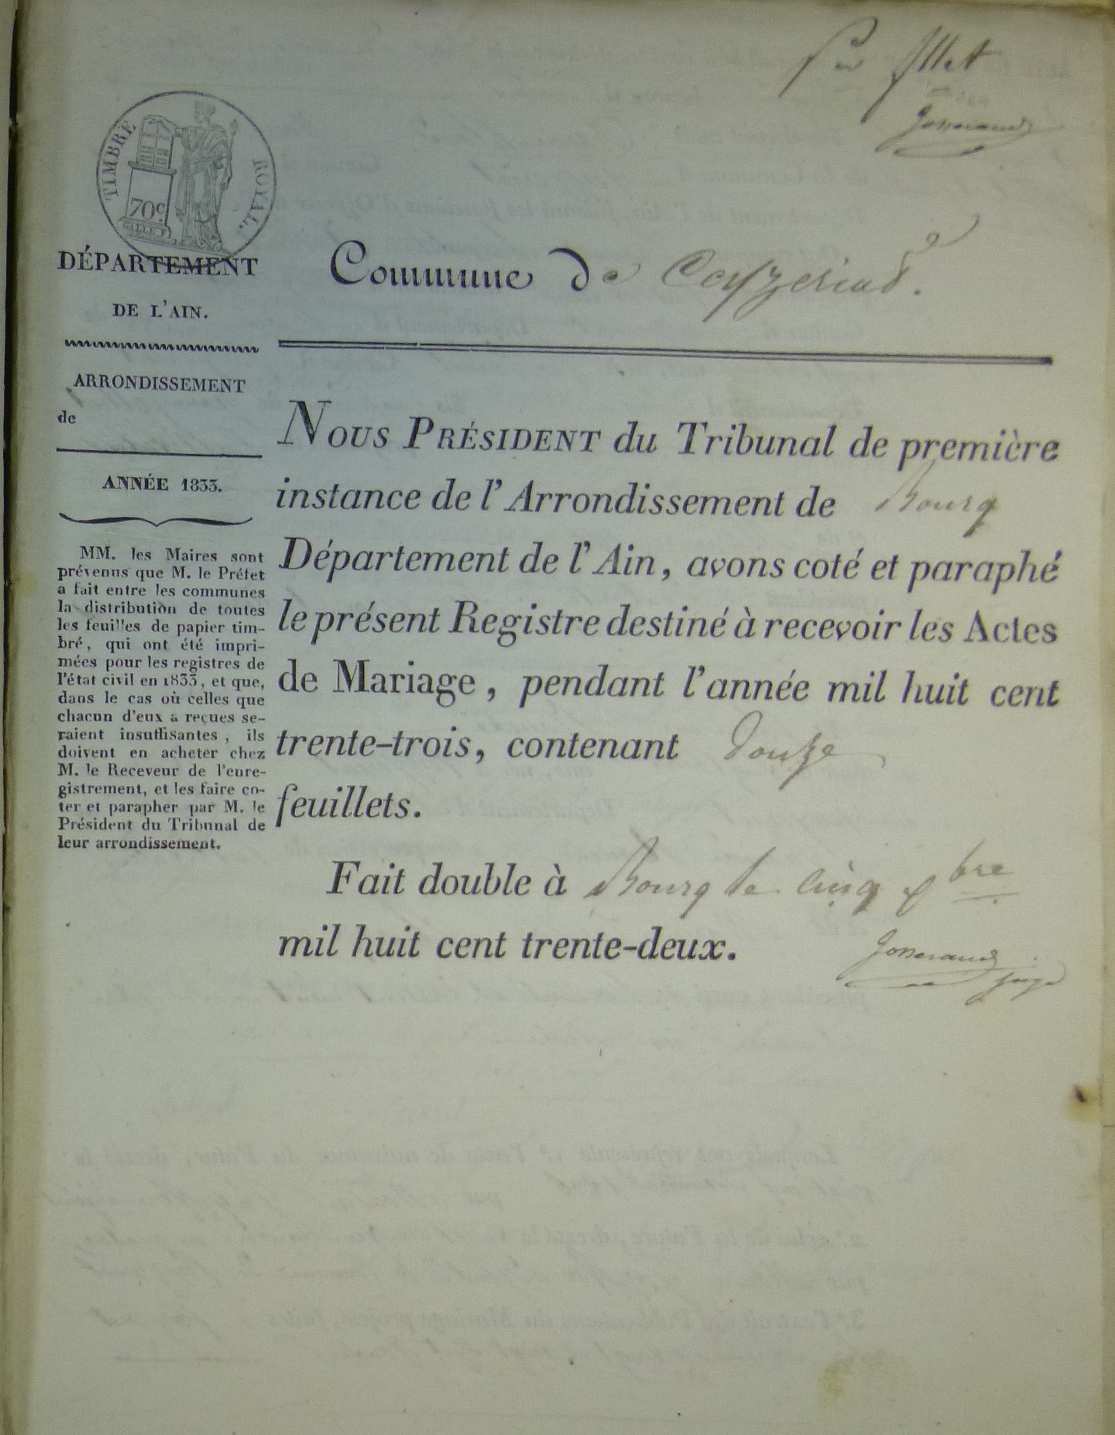 Per fllet
Josserand
TIMBRE ROYAL.
70c
DÉPARTEMENT
DE L'AIN.
Commune de Ceyzeriat.
ARRONDISSEMENT
de
ANNÉE 1833.
MM. les Maires sont
prévenus que M. le Préfet
a fait entre les communes
la distribution de toutes
les feuilles de papier tim-
bré, qui ont été impri-
mées pour les registres de
l'état civil en 1833, et que,
dans le cas où celles que
chacun d'eux a reçues se-
raient insuffisantes, ils
doivent en acheter chez
M. le Receveur de l'enre-
gistrement, et les faire co-
ter et parapher par M. le
Président du Tribunal de
leur arrondissement.
NOUS PRÉSIDENT du Tribunal de première
instance de l'Arrondissement de Bourg
Département de l'Ain, avons coté et paraphé
le présent Registre destiné à recevoir les Actes
de Mariage, pendant l'année mil huit cent
trente-trois, contenant Douze
feuillets.
Fait double à Bourg le cinq bre
mil huit cent trente-deux.
Josserand
juge